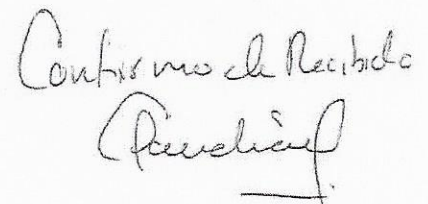 Confirmo de Recibido